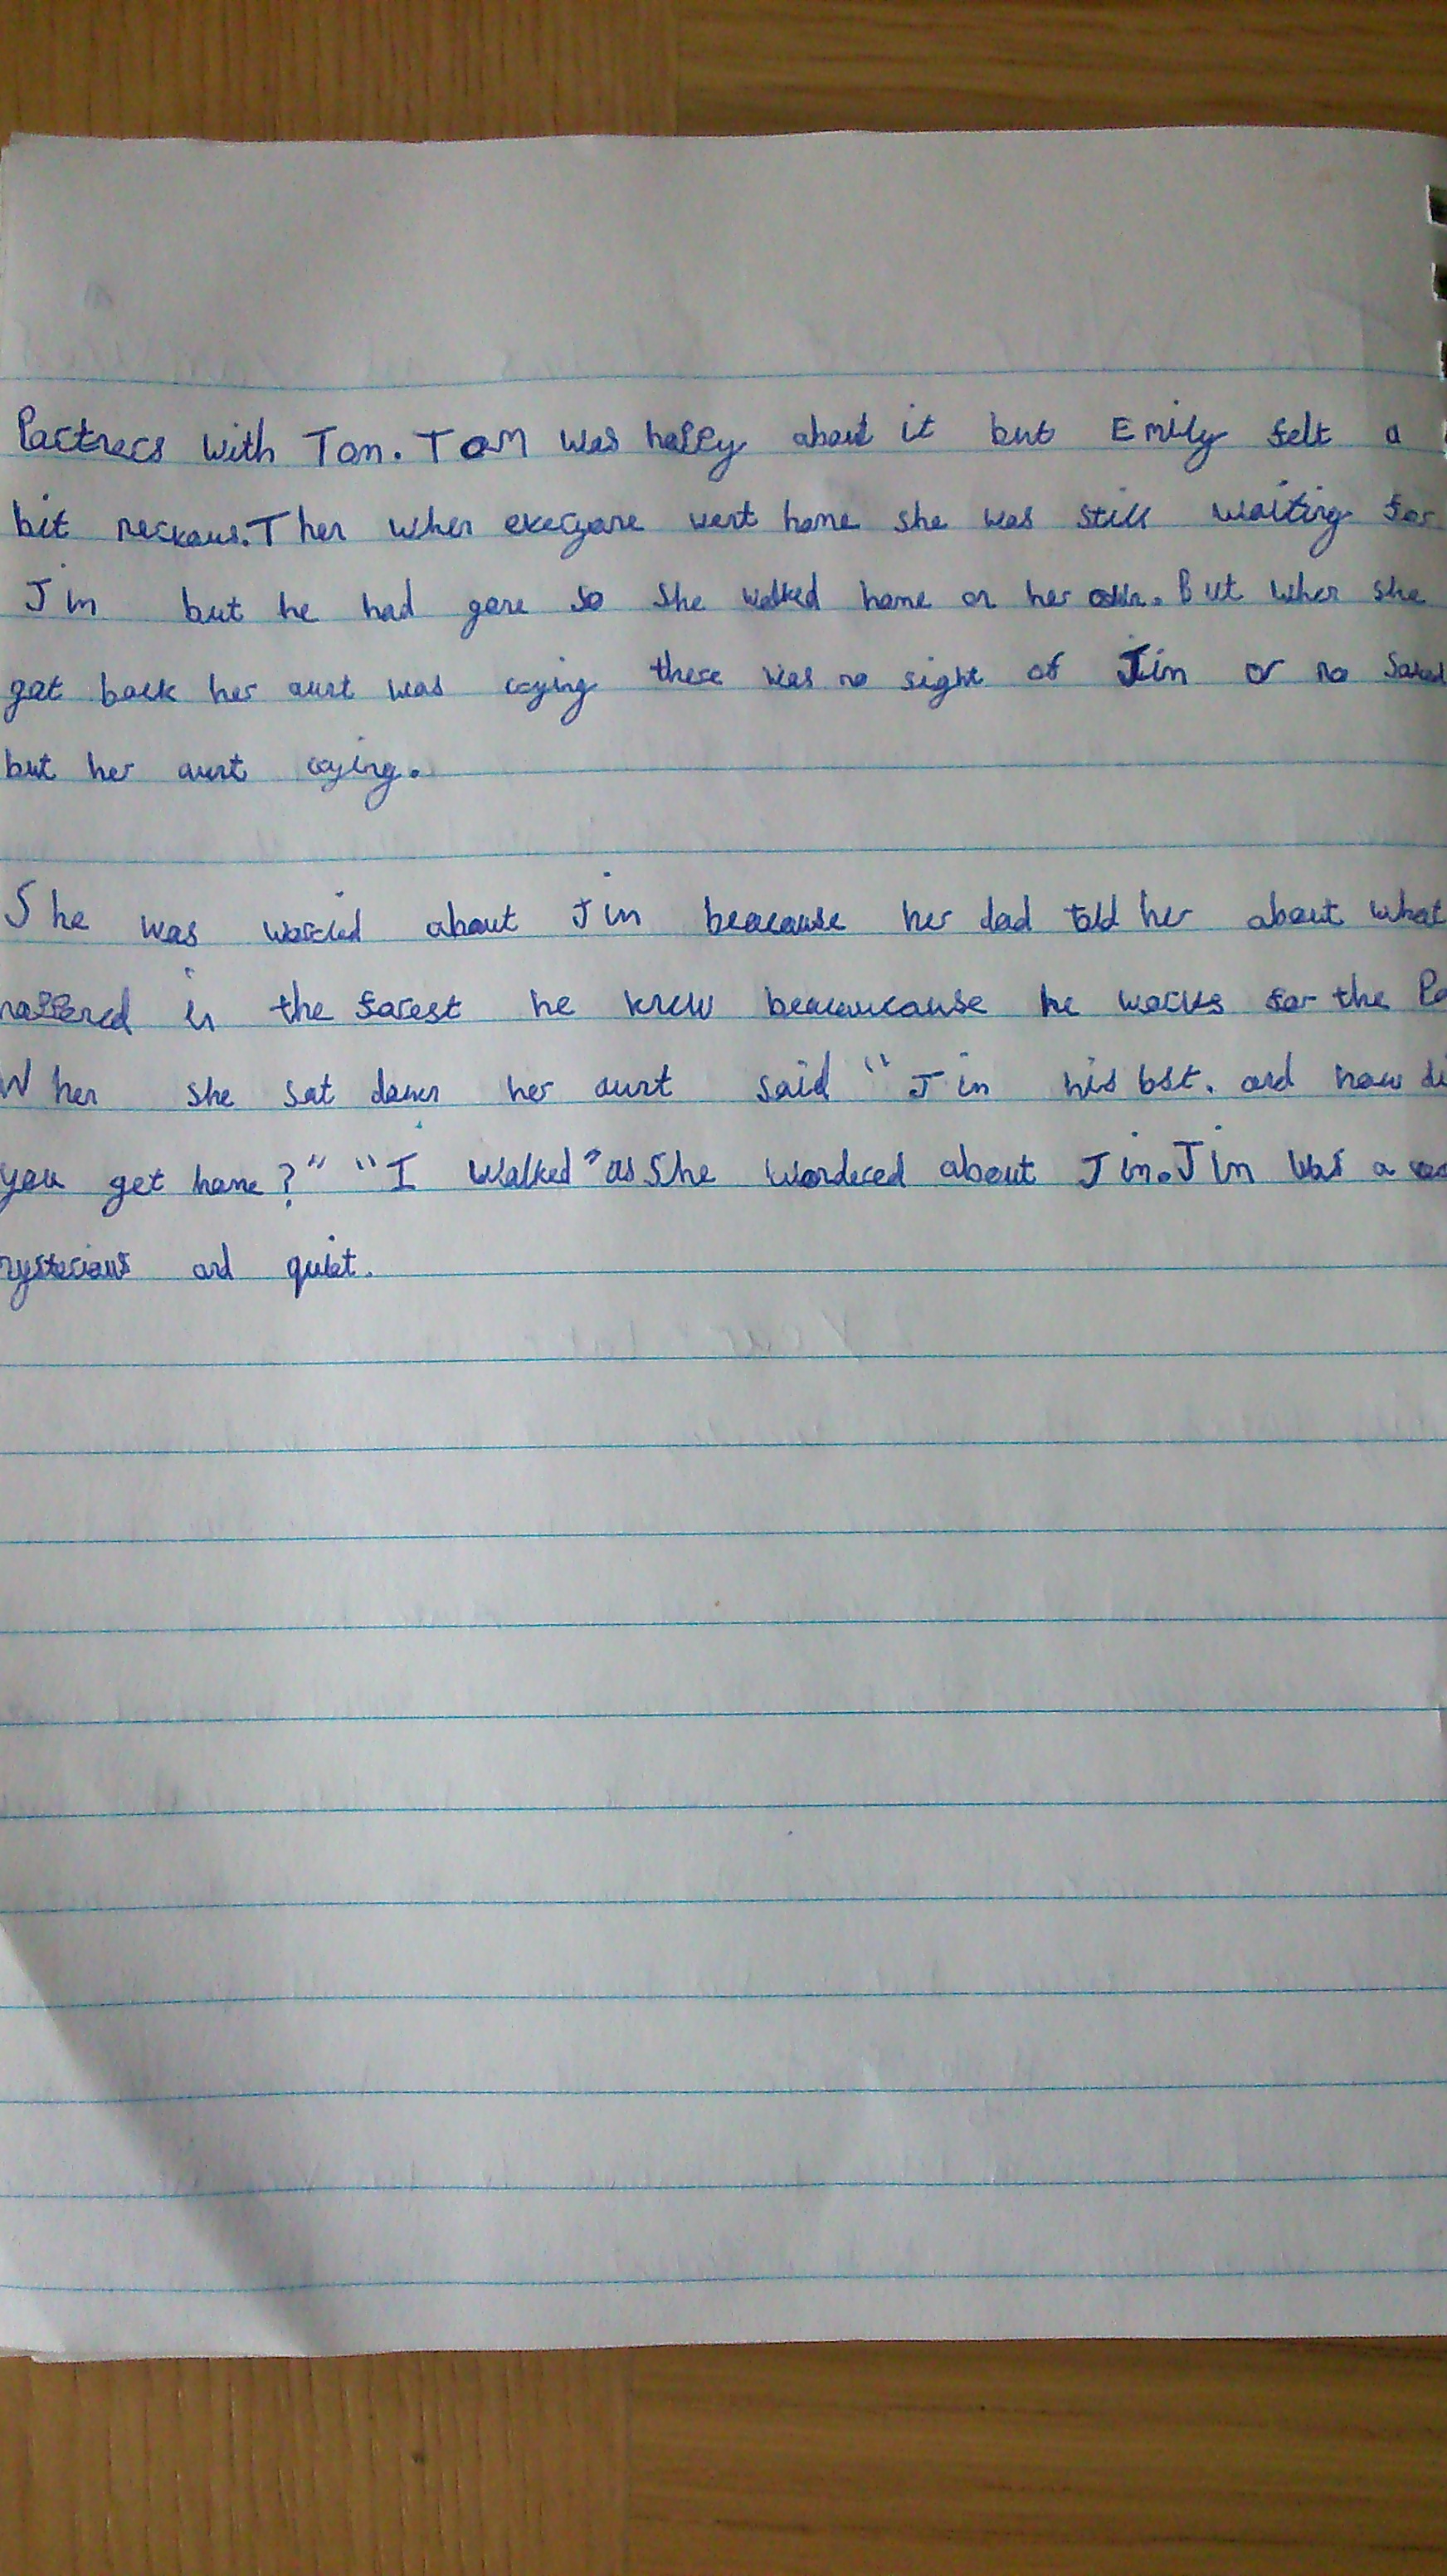 Partners with Tom. Tom was happy about it but Emily felt a
bit nervous. Then when everyone went home she was still waiting for
Jim but he had gone so she walked home on her own. But when she
got back her aunt was crying there was no sight of Jim or no sound
but her aunt crying.
She was worried about Jim beacause her dad told her about what
happened in the forest he knew because he works for the Po
When she sat down her aunt said "Jim his bst. and how di
you get home?" "I walked" as she wondered about Jim. Jim was a
mysterious and quiet.